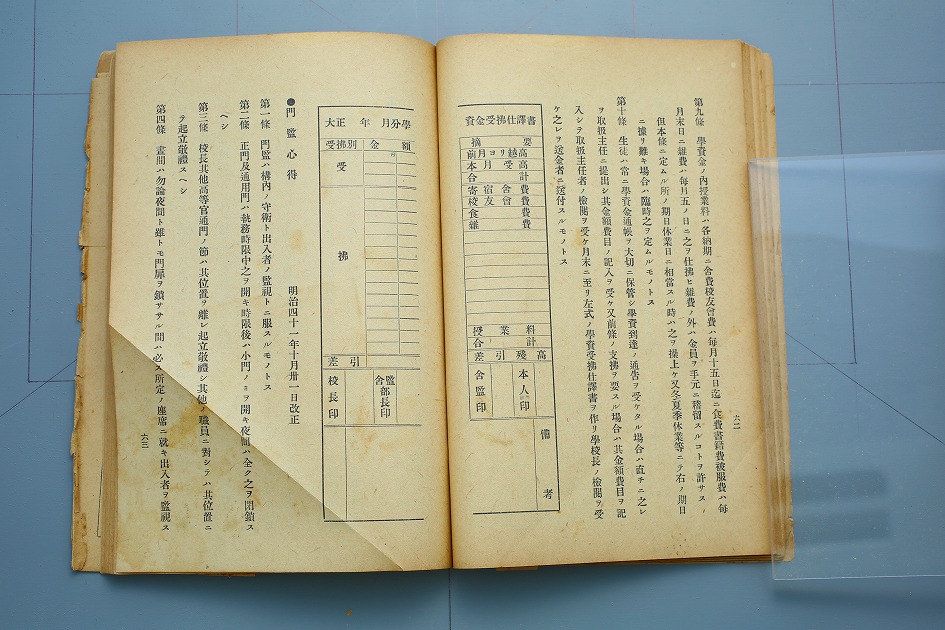 第九條　學資金ノ內授業料ハ各納期ニ舍費校友會費ハ每月十五日迄ニ食費書籍費被服費ハ每
月末日ニ雜費ハ每月五ノ日ニ之ヲ仕拂ヒ雜費ノ外ハ金員ヲ手元ニ稽留スルコトヲ許サス
但本條ニ定ムル所ノ期日休業日ニ相當スル時ハ之ヲ操上ケ又冬夏季休業等ニテ右ノ期日
ニ據リ難キ場合ハ臨時之ヲ定ムルモノトス
第十條　生徒ハ常ニ學資金通帳ヲ大切ニ保管シ學資到達ノ通告ヲ受ケタル場合ハ直チニ之レ
ヲ取扱主任ニ提出シ其金額費目ノ記入ヲ受ケ又前條ノ支拂ヲ要スル場合ハ其金額費目ヲ記
入シテ取扱主任者ノ檢閱ヲ受ケ月末ニ至リ左式ノ學資受拂仕譯書ヲ作リ學校長ノ檢閱ヲ受
ケ之レヲ送金者ニ送付スルモノトス
六二
資金受拂仕譯書
摘要
前月ヨリ越高
本月受高
合計
寄宿舍費
校友會費
食費
雜費
授業料
合計
差引殘高
本人印
舍監印
備考
大正　年　月分學
受拂別　金額
円
受
拂
差引
舍監部長印
校長印
●門監心得　明治四十一年十月卅一日改正
第一條　門監ハ構內ノ守衛ト出入者ノ監視トニ服スルモノトス
第二條　正門及通用門ハ執務時限中之ヲ開キ時限後ハ小門ノミヲ開キ夜間ハ全ク之ヲ閉鎖ス
ヘシ
第三條　校長其他高等官通門ノ節ハ其位置ヲ離レ起立敬禮シ其他ノ職員ニ對シテハ其位置ニ
テ起立敬禮スヘシ
第四條　晝間ハ勿論夜間ト雖トモ門扉ヲ鎖ササル間ハ必ス所定ノ座席ニ就キ出入者ヲ監視ス
六三